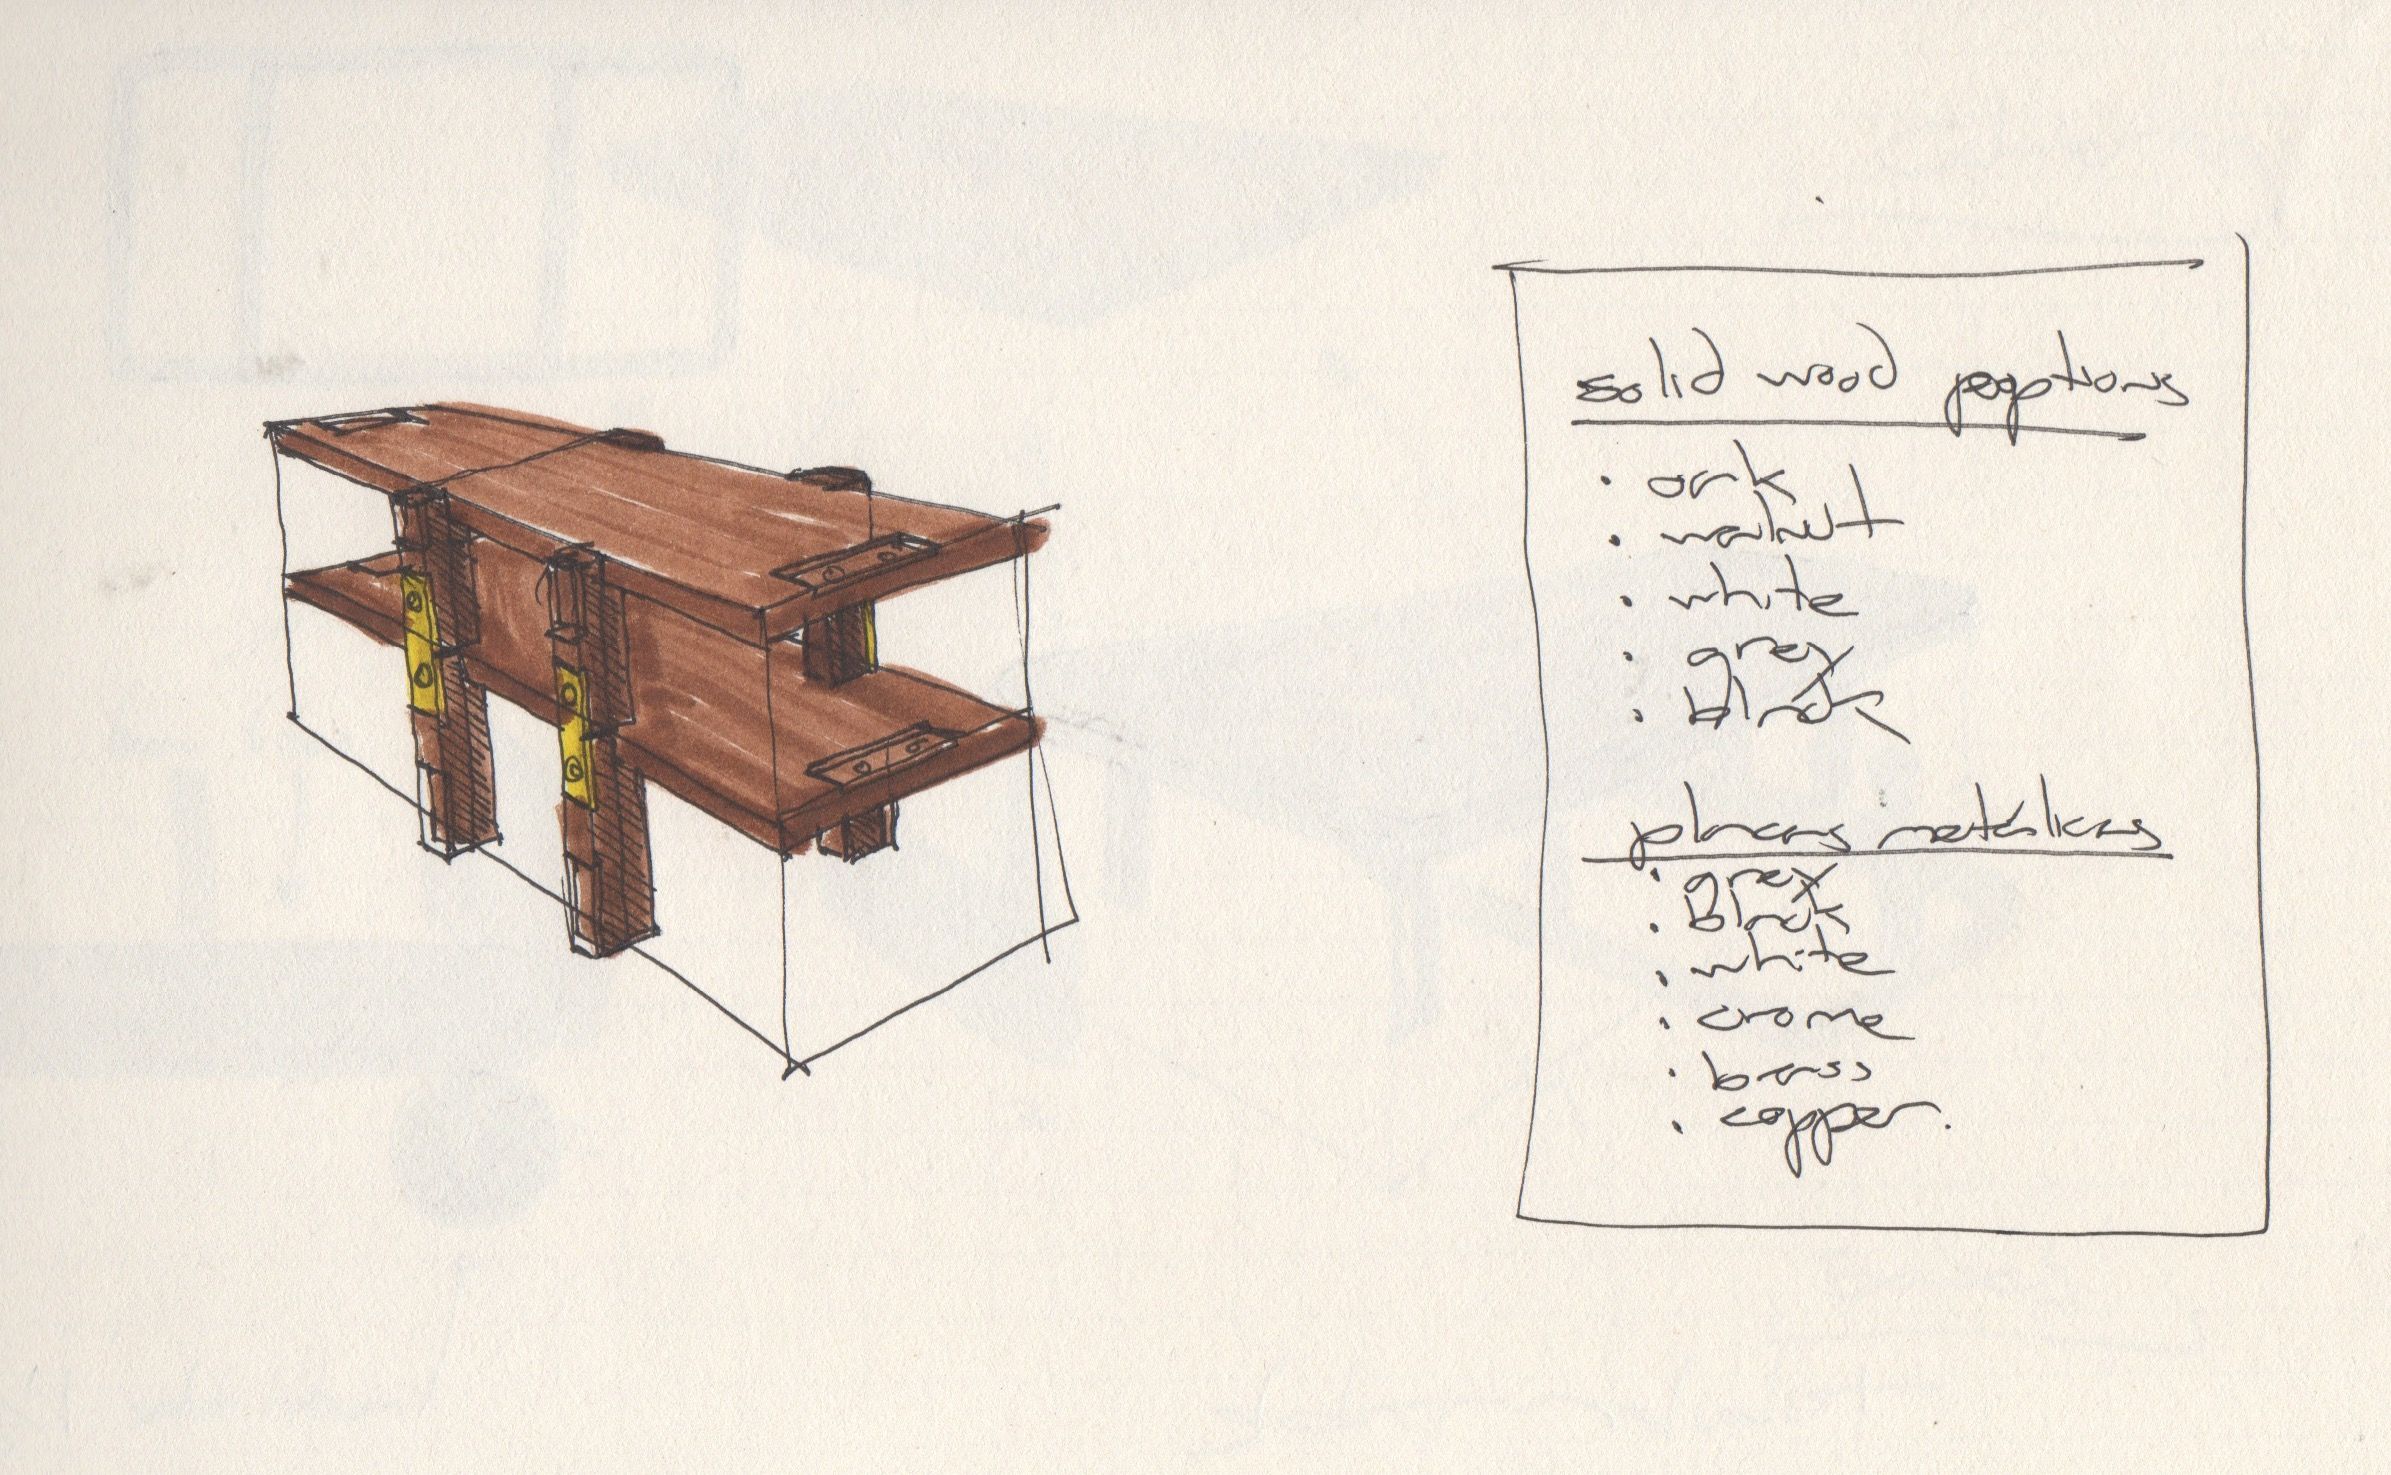 solid wood poptions
· oak
· walnut
· white
· grey
· black
placas metálicas
· grey
· Black
· white
· crome
· brass
· copper.